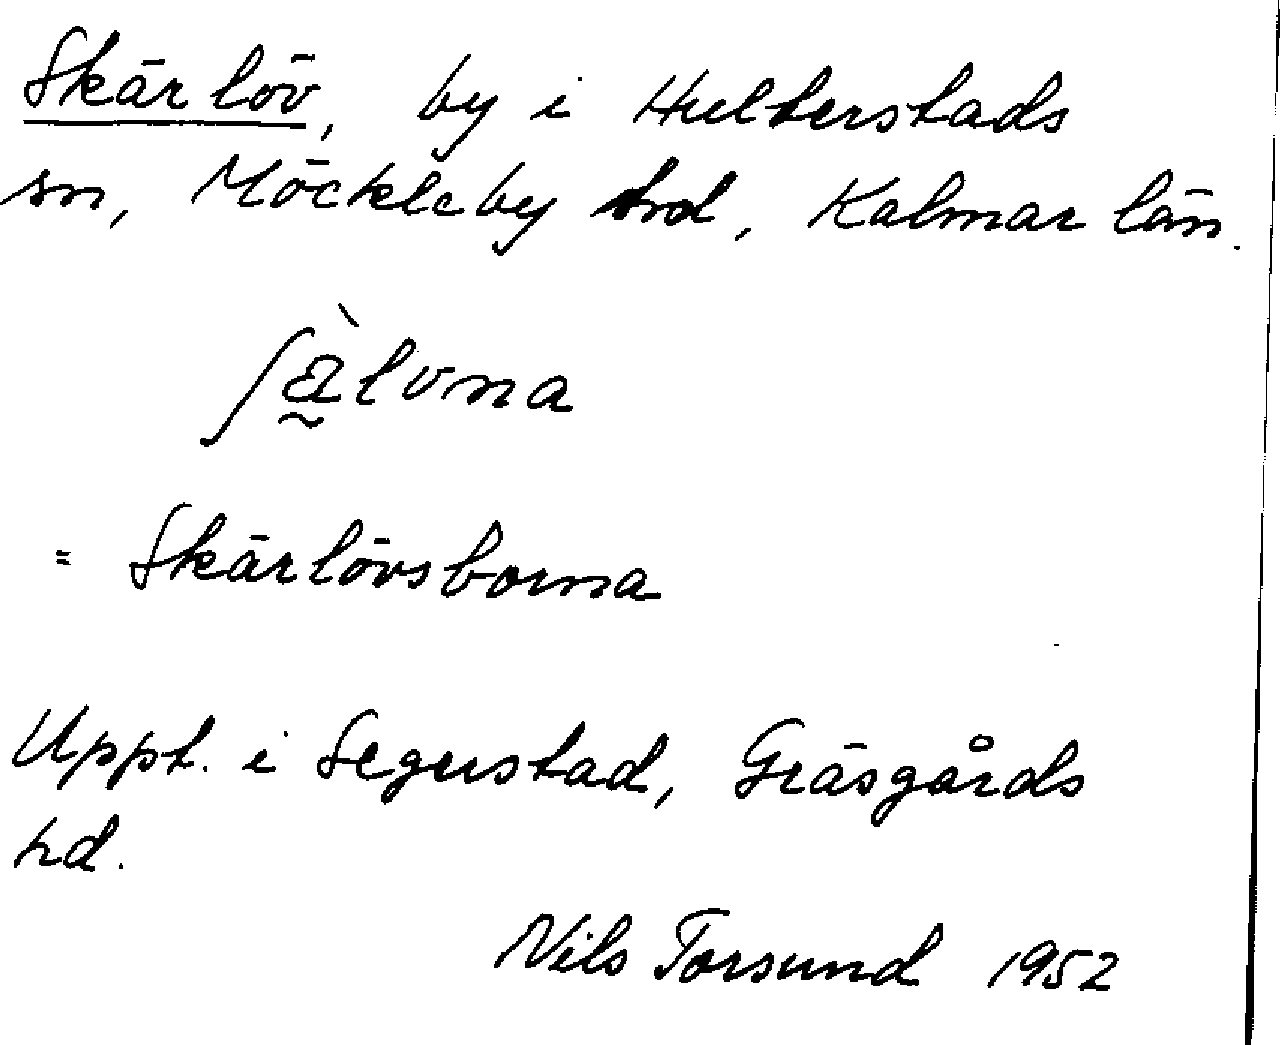 Skärlöv, by i Hulterstads
sn, Möckleby hd, Kalmar län.
ʃæ̰̀lvna
= Skärlövsborna
Uppt. i Segerstad, Gräsgårds
hd.
Nils Torsund 1952